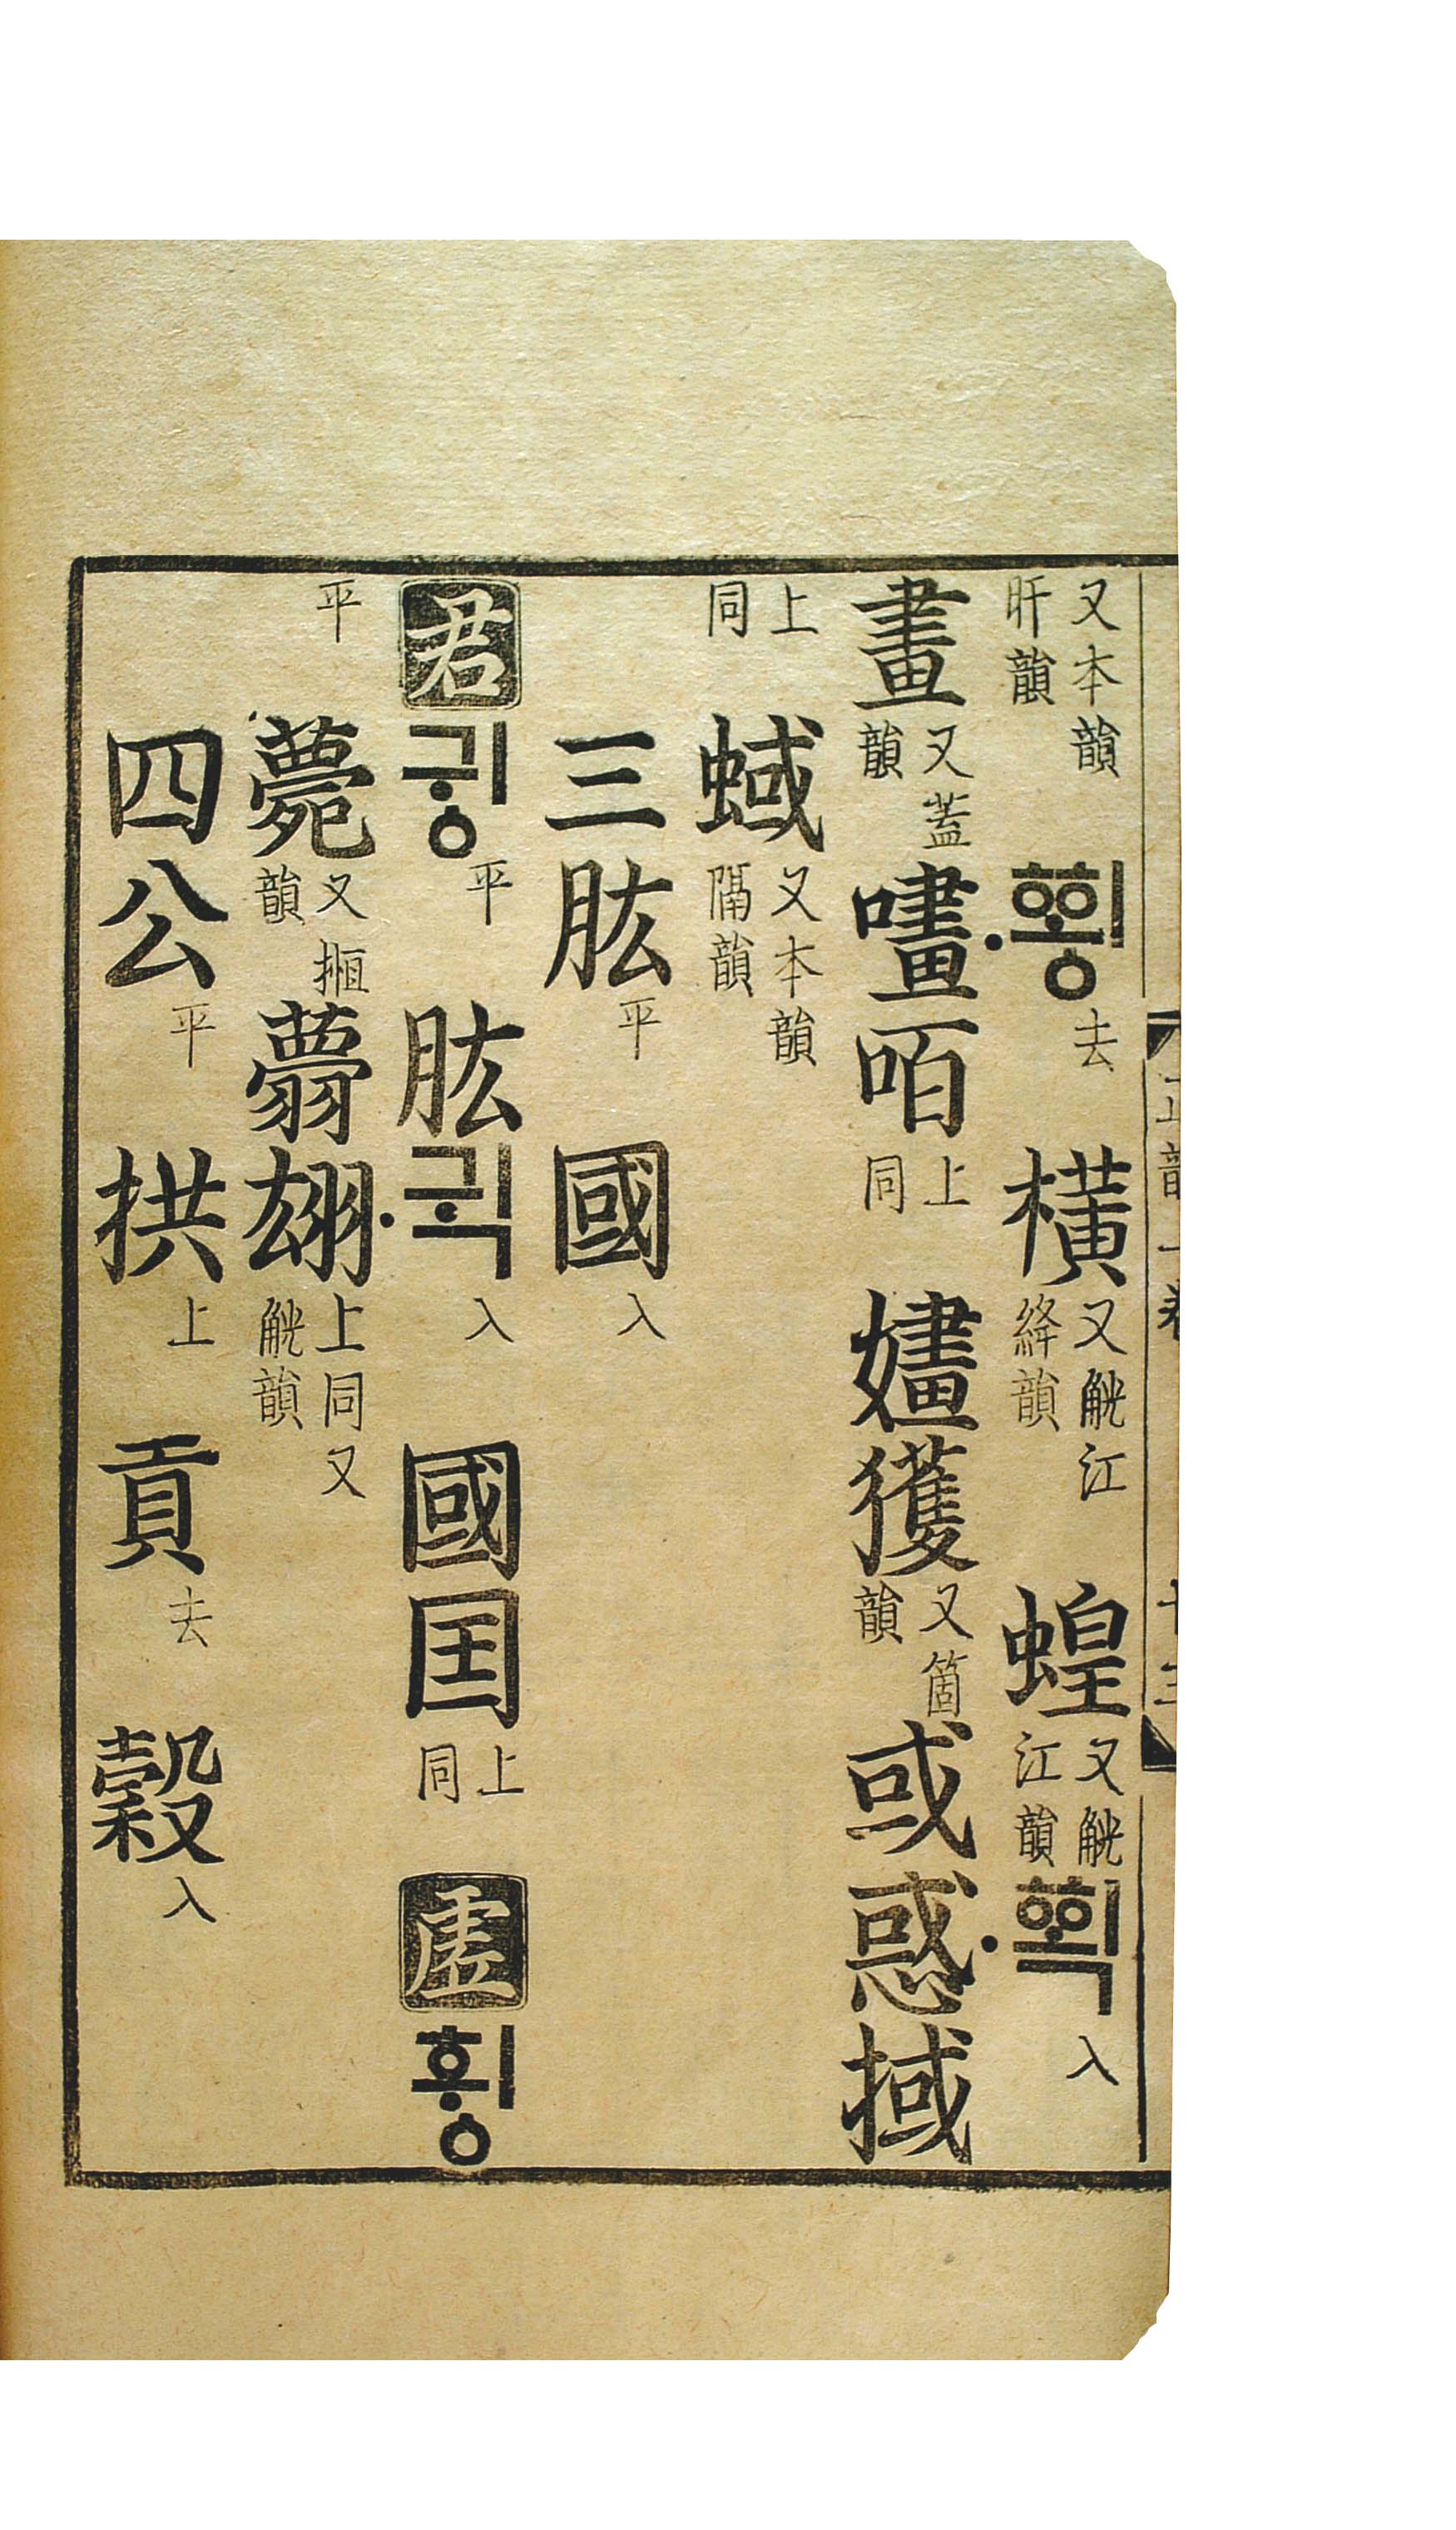 又本韻旰韻 ᅘᅬᇰ〮去 橫又觥江絳韻 蝗又觥江韻 ᅘᅬᆨ〮入
畫又蓋韻 咟上同 嫿獲又箇韻 或惑掝
上同 蜮又本韻隔韻
三肱平 國入
君 귀ᇰ平 肱 귁〮入 國囯上同 虛 휘ᇰ
平 薨又搄韻 翃上同又觥韻
四公平 拱上 貢去 穀入